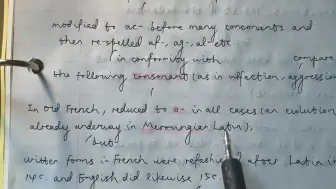 modified to ac- before many consonants and
then re-spelled af-, ag-, al- etc
in conformity with compare
the following consonant (as in affection, aggression
In Old French, reduced to a- in all cases (an evolution
already underway in Merovingian Latin),
but
written forms in French were refashioned after Latin in
14c. and English did likewise 15c.